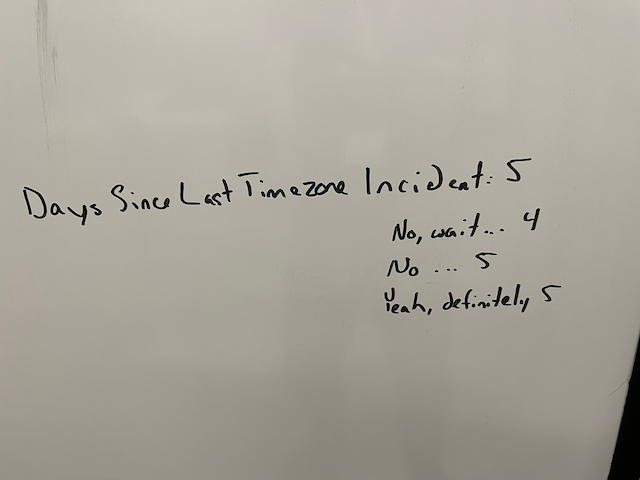 Days Since Last Timezone Incident: 5
No, wait... 4
No ... 5
Yeah, definitely 5